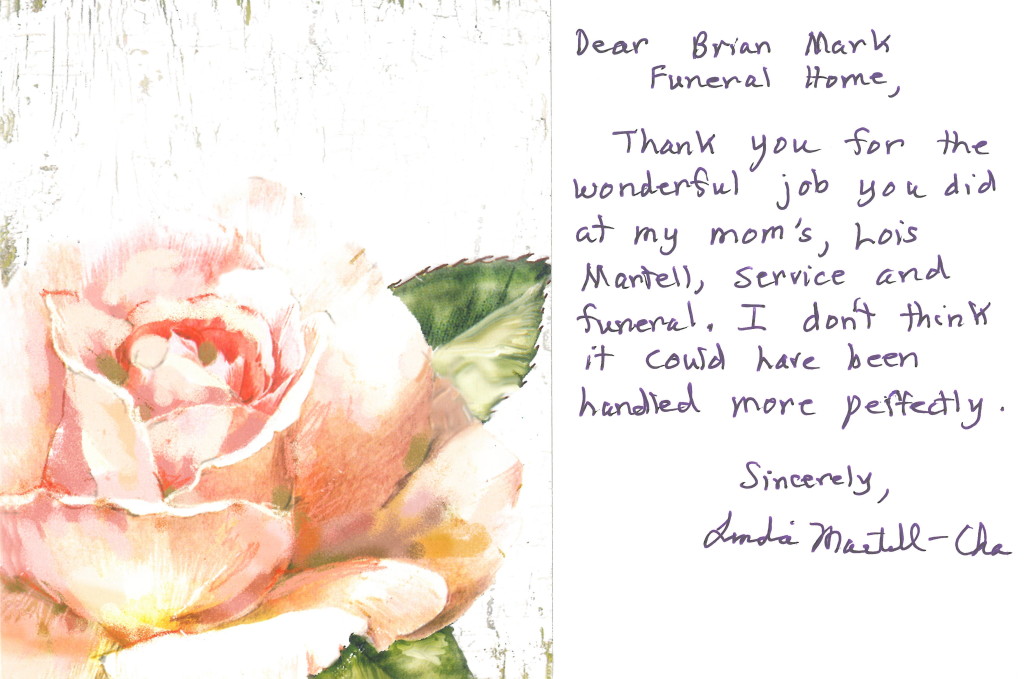 Dear Brian Mark
Funeral Home,
Thank you for the
wonderful job you did
at my mom's, Lois
Martell, service and
funeral. I don't think
it could have been
handled more perfectly.
Sincerely,
Linda Martell-Cha